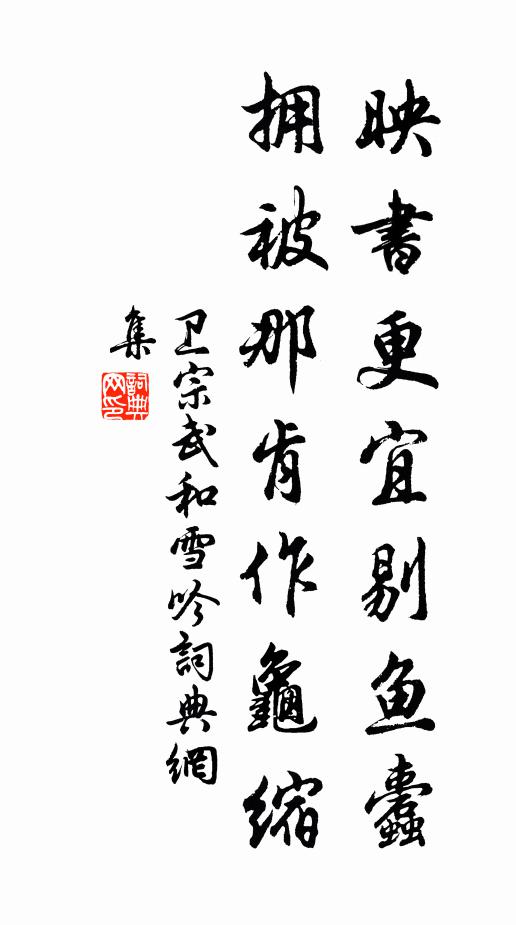 映書更宜剔鱼蠹
拥被那肯作龜缩
卫宗武和雪吟詞典網
集
詞典網印